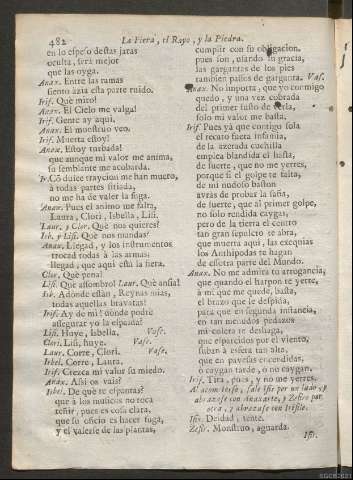 482 La Fiera, el Rayo, y la Piedra.
en lo espeso destas jaras
oculta, será mejor
que las oyga.
Anax. Entre las ramas
siento azia esta parte ruido.
Irif. Què miro!
Anax. El Cielo me valga!
Irif. Gente ay aqui.
Anax. El monstruo veo.
Irif. Muerta estoy!
Anax. Estoy turbada!
que aunque mi valor me anima,
su semblante me acobarda.
dulce traycion me han muerto,
à todas partes sitiada,
no me ha de valer la fuga.
Anax. Pues el animo me falta,
Laura, Clori, Isbella, Lisi.
Laur. y Clor. Què nos quieres?
Isb. y Lisi. Què nos mandas?
Anax. Llegad, y los instrumentos
trocad todas à las armas;
llegad, que aqui està la fiera.
Clor. Què pena!
Lisi. Què assombro! Laur. Què ansia!
Irif. Adònde estàn, Reynas mias,
todas aquellas bravatas?
Irif. Ay de mi! dònde podrè
assegurar yo la espalda?
Lisi. Huye, Isbella. Vase.
Clori. Lisi, huye. Vase.
Laur. Corre, Clori. Vase.
Isbel. Corre, Laura.
Irif. Crezca mi valor su miedo.
Anax. Assi os vais?
Isbel. De què te espantas?
que à los musicos no toca
reñir, pues es cosa clara,
que su oficio es hacer fuga,
y el valerse de las plantas,
cumplir con su obligacion,
pues son, usando su gracia,
las gargantas de los pies
tambien passos de garganta. Vas.
Anax. No importa, que yo conmigo
quedo, y una vez cobrada
del primer susto de verla,
solo mi valor me basta.
Irif. Pues yà que contigo sola
el recato fuera infamia,
de la azerada cuchilla
empica blandida el hasta,
de suerte, que no me yerres,
porque si el golpe te falta,
de mi nudoso baston
avràs de probar la saña,
de suerte, que al primer golpe,
no solo rendida caygas,
pero de la tierra el centro
tan gran sepulcro te abra,
que muerta aqui, las exequias
los Antipodas te hagan
de essotra parte del Mundo.
Anax. No me admira tu arrogancia,
que quando el harpon te yerre,
à mi que me quede, basta,
el brazo que le despida,
para que en segunda instancia,
en tan menudos pedazos
mi colera te deshaga,
que esparcidos por el viento,
suban à esfera tan alta,
que en pavesas encendidas,
ò caygan tarde, ò no caygan.
Irif. Tira, pues, y no me yerres.
Al acometerse, sale Ifis por un lado, y
abrazase con Anaxarte, y Zefiro por
otra, y abrazase con Irifile.
Ifis. Deidad, tente.
Zefir. Monstruo, aguarda.
Ifis.